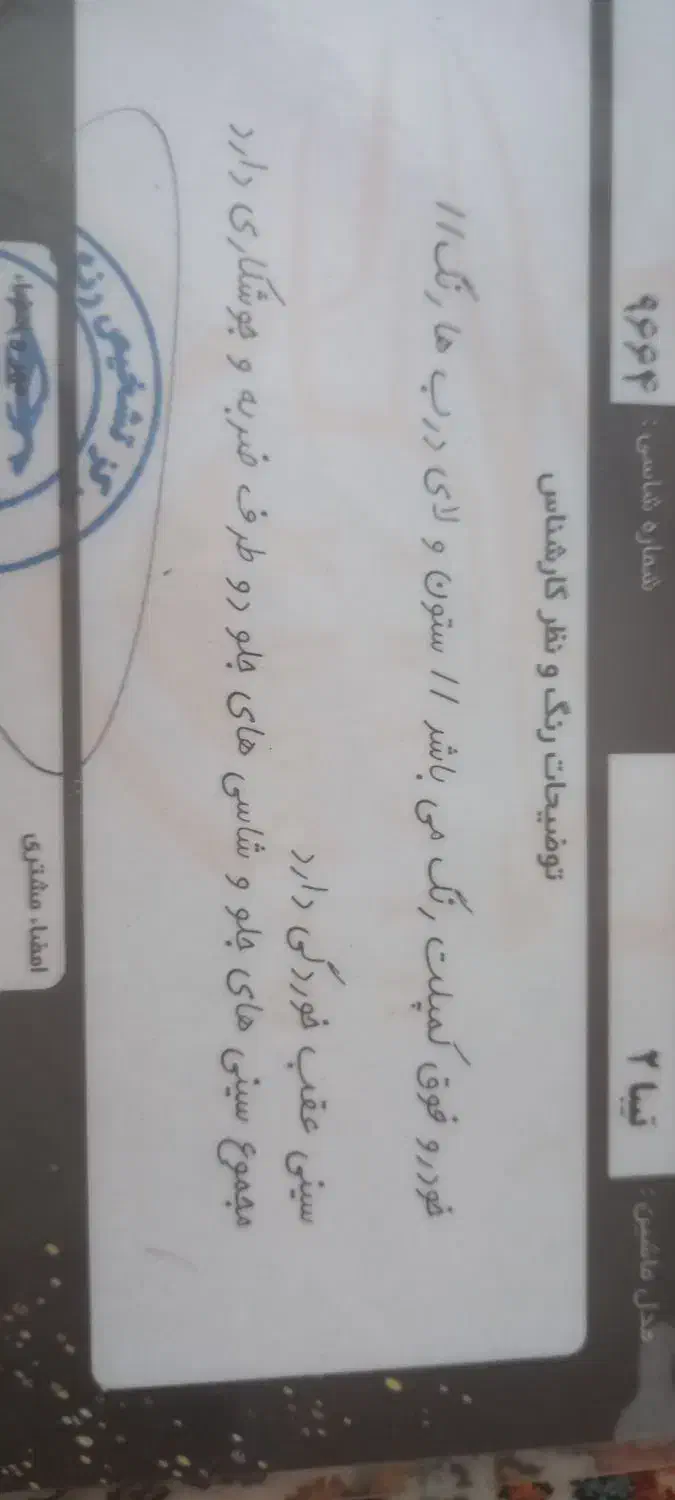 مدل ماشین : تیبا ۲ شماره شاسی : ۹۶۶۴
توضیحات رنگ و نظر کارشناس
خودرو فوق کمپلت رنگ می باشد // ستون و لای درب ها رنگ //
سینی عقب خوردگی دارد
مجموع سینی های جلو و شاسی های جلو دو طرف ضربه و جوشکاری دارد
تشخیص رنگ
امضاء مشتری